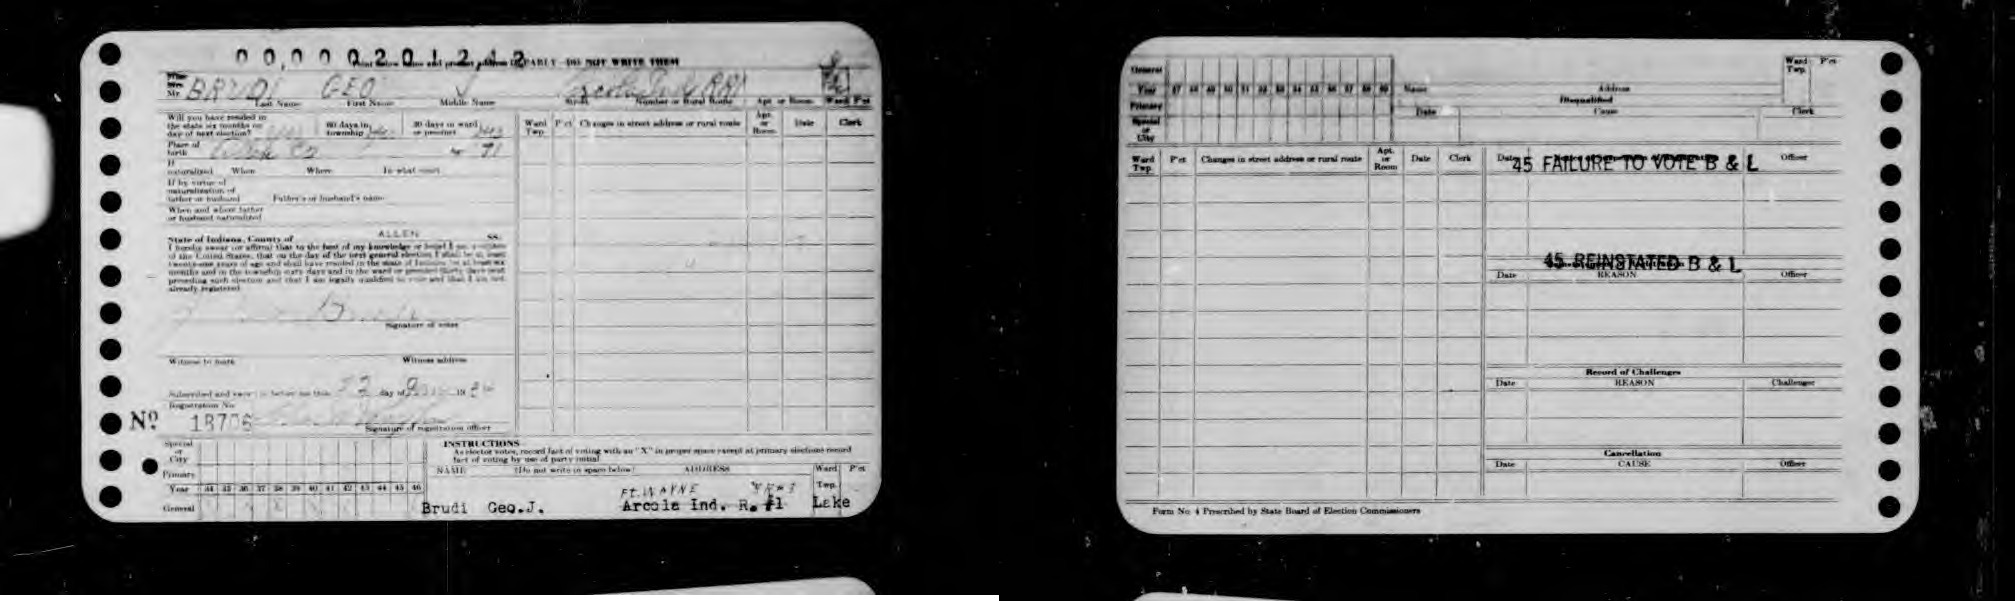 00,00020,1242
Print name and present address CLEARLY—DO NOT WRITE THEM
Miss
Mrs.
Mr. BRUDI GEO J Arcola Ind RR1
Last Name First Name Middle Name Street Number or Rural Route Apt. or Room Ward P'ct
Will you have resided in the state six months on day of next election? yes 60 days in township yes 30 days in ward or precinct yes
Place of birth Allen Co 71
If naturalized When Where In what court
If by virtue of naturalization of father or husband Father's or husband's name
When and where father or husband naturalized
State of Indiana, County of ALLEN SS:
I hereby swear (or affirm) that to the best of my knowledge or belief I am a citizen
of the United States, that on the day of the next general election I shall be at least
twenty-one years of age and shall have resided in the state of Indiana for at least six
months and in the township sixty days and in the ward or precinct thirty days next
preceding such election and that I am legally qualified to vote and that I am not
already registered.
Brudi
Signature of voter
Witness to mark Witness address
Subscribed and sworn to before me this 22 day of 19
Registration No.
Nº 18706
Signature of registration officer
Ward Twp. P'ct Changes in street address or rural route Apt. or Room Date Clerk
Special or City
Primary
Year 34 35 36 37 38 39 40 41 42 43 44 45 46
General
INSTRUCTIONS
As elector votes, record fact of voting with an "X" in proper space except at primary elections record
fact of voting by use of party initial
NAME (Do not write in space below) ADDRESS Ward P'ct
Twp.
FT. WAYNE
Brudi Geo.J. Arcola Ind. R.#1 Lake
General
Year 47 48 49 50 51 52 53 54 55 56 57 58 59
Primary
Special or City
Name Address Ward Twp. P'ct
Disqualified
Date Cause Clerk
Ward Twp. P'ct Changes in street address or rural route Apt. or Room Date Clerk
Date Officer
45 FAILURE TO VOTE B & L
45 REINSTATED B & L
Date REASON Officer
Record of Challenges
Date REASON Challenger
Cancellation
Date CAUSE Officer
Form No. 4 Prescribed by State Board of Election Commissioners